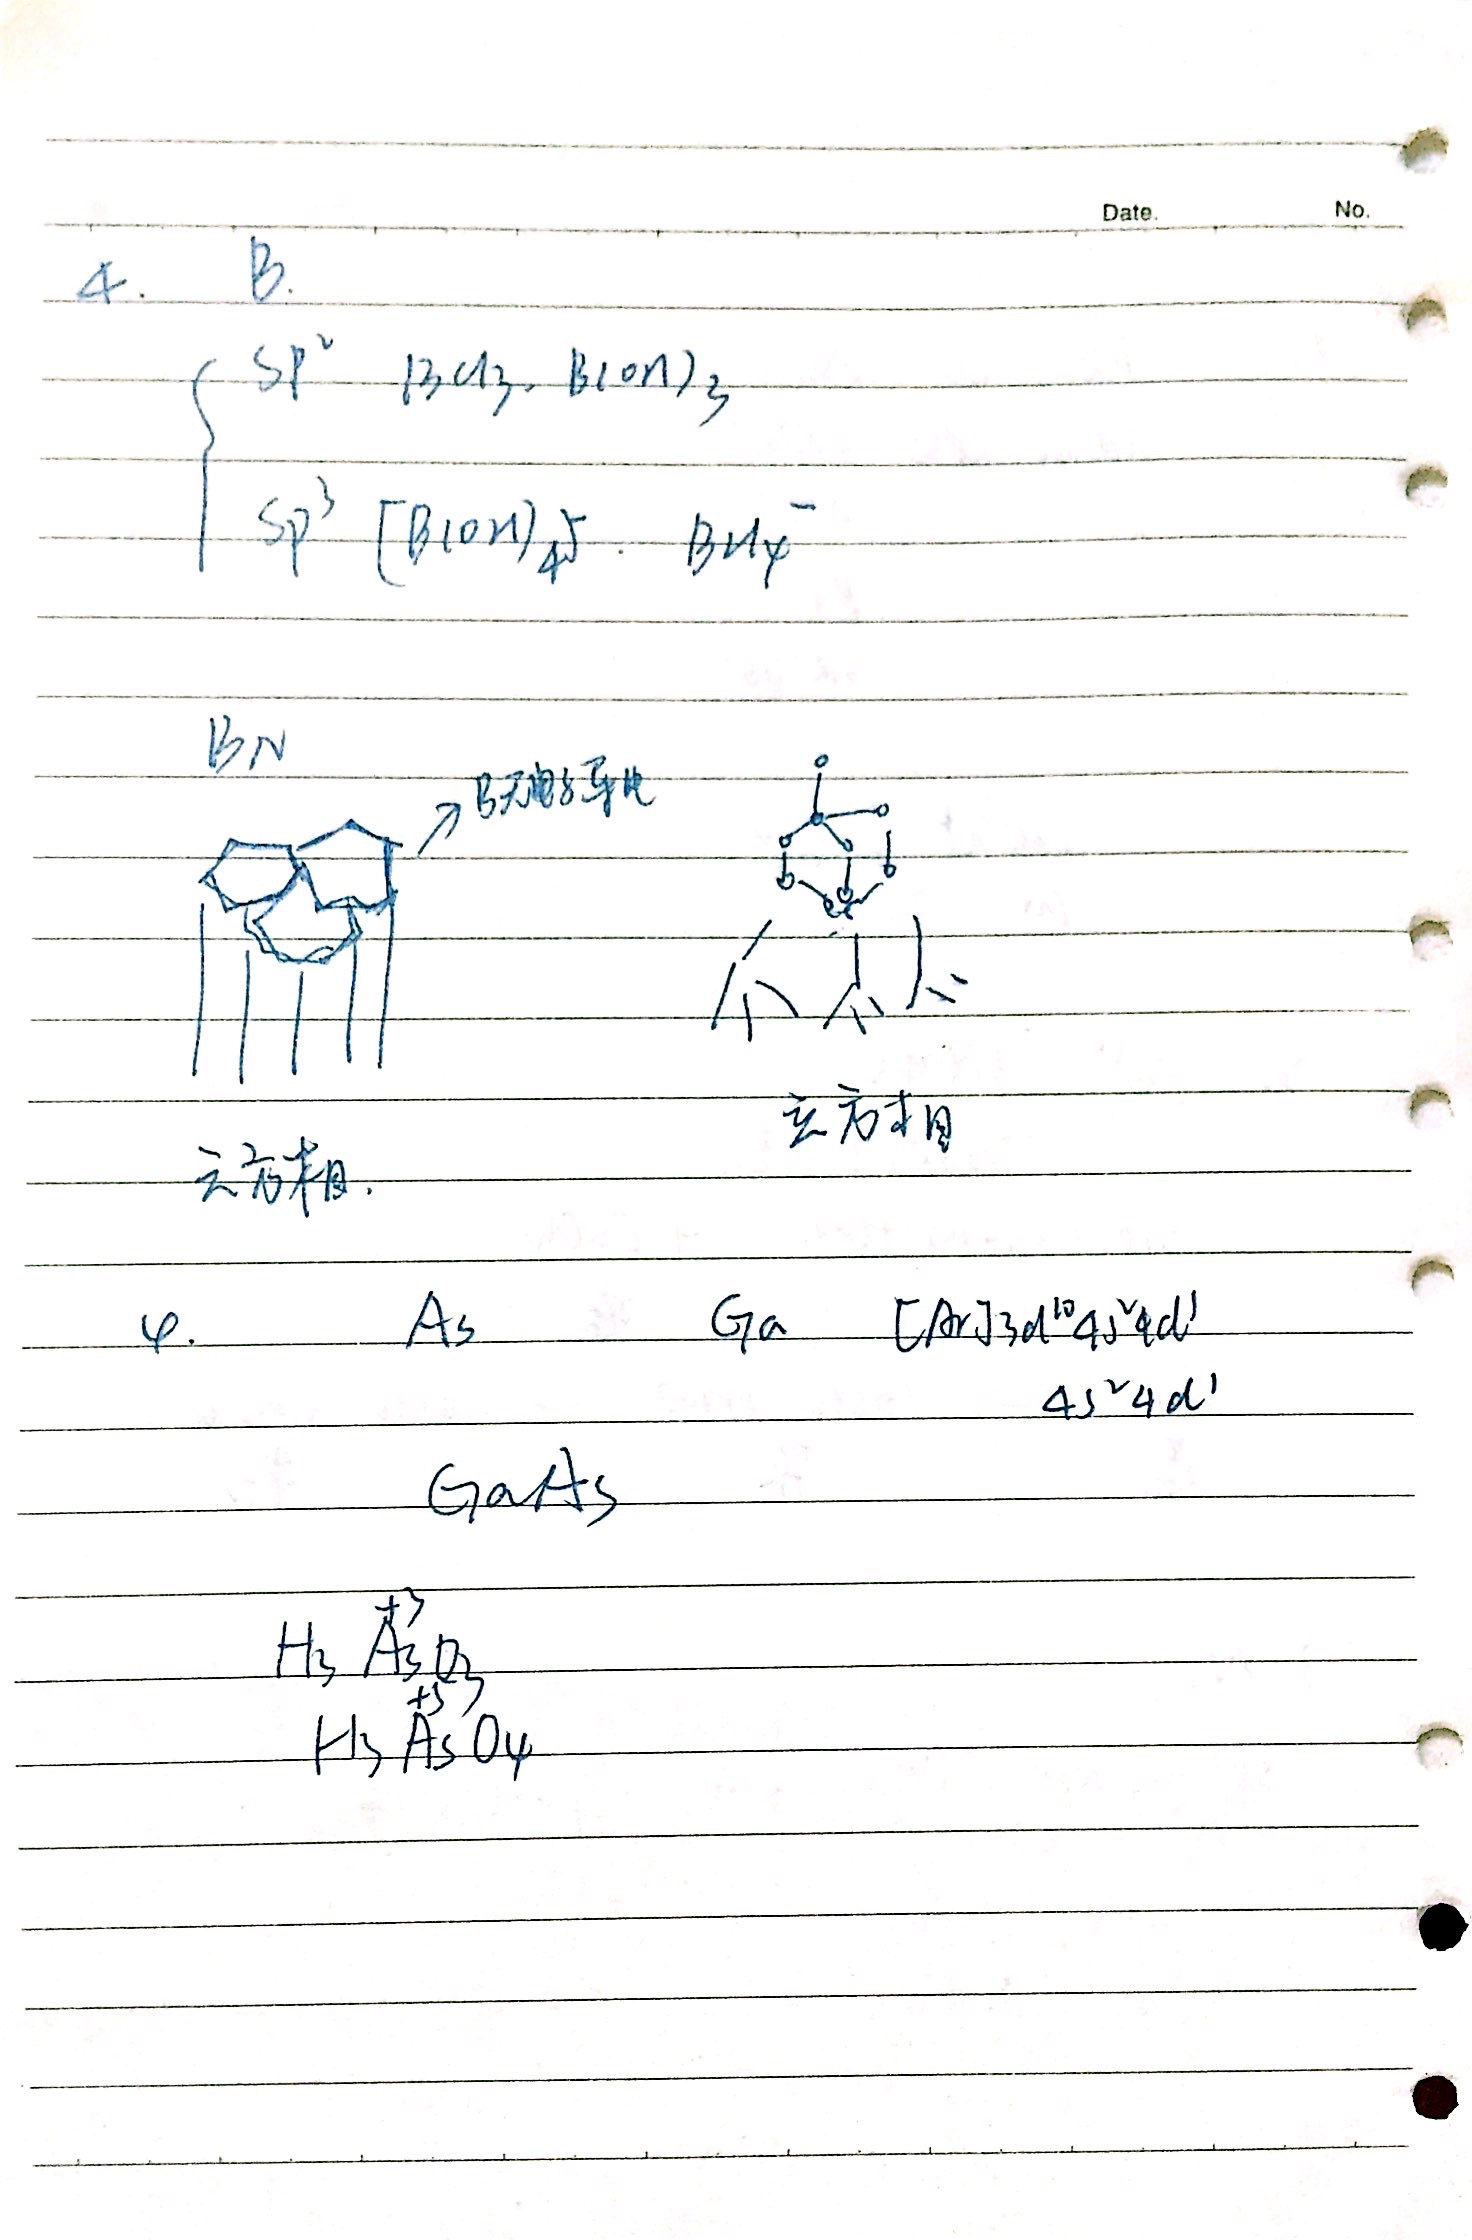 Date. No.
4. B.
sp² BCl₃. B(OH)₃
sp³ [B(OH)₄]⁻. BH₄⁻
BN
B无电子导电
立方相
六方相.
4. As Ga [Ar]3d¹⁰4s²4d¹
4s²4d¹
GaAs
+3
H₃AsO₃
+5
H₃AsO₄